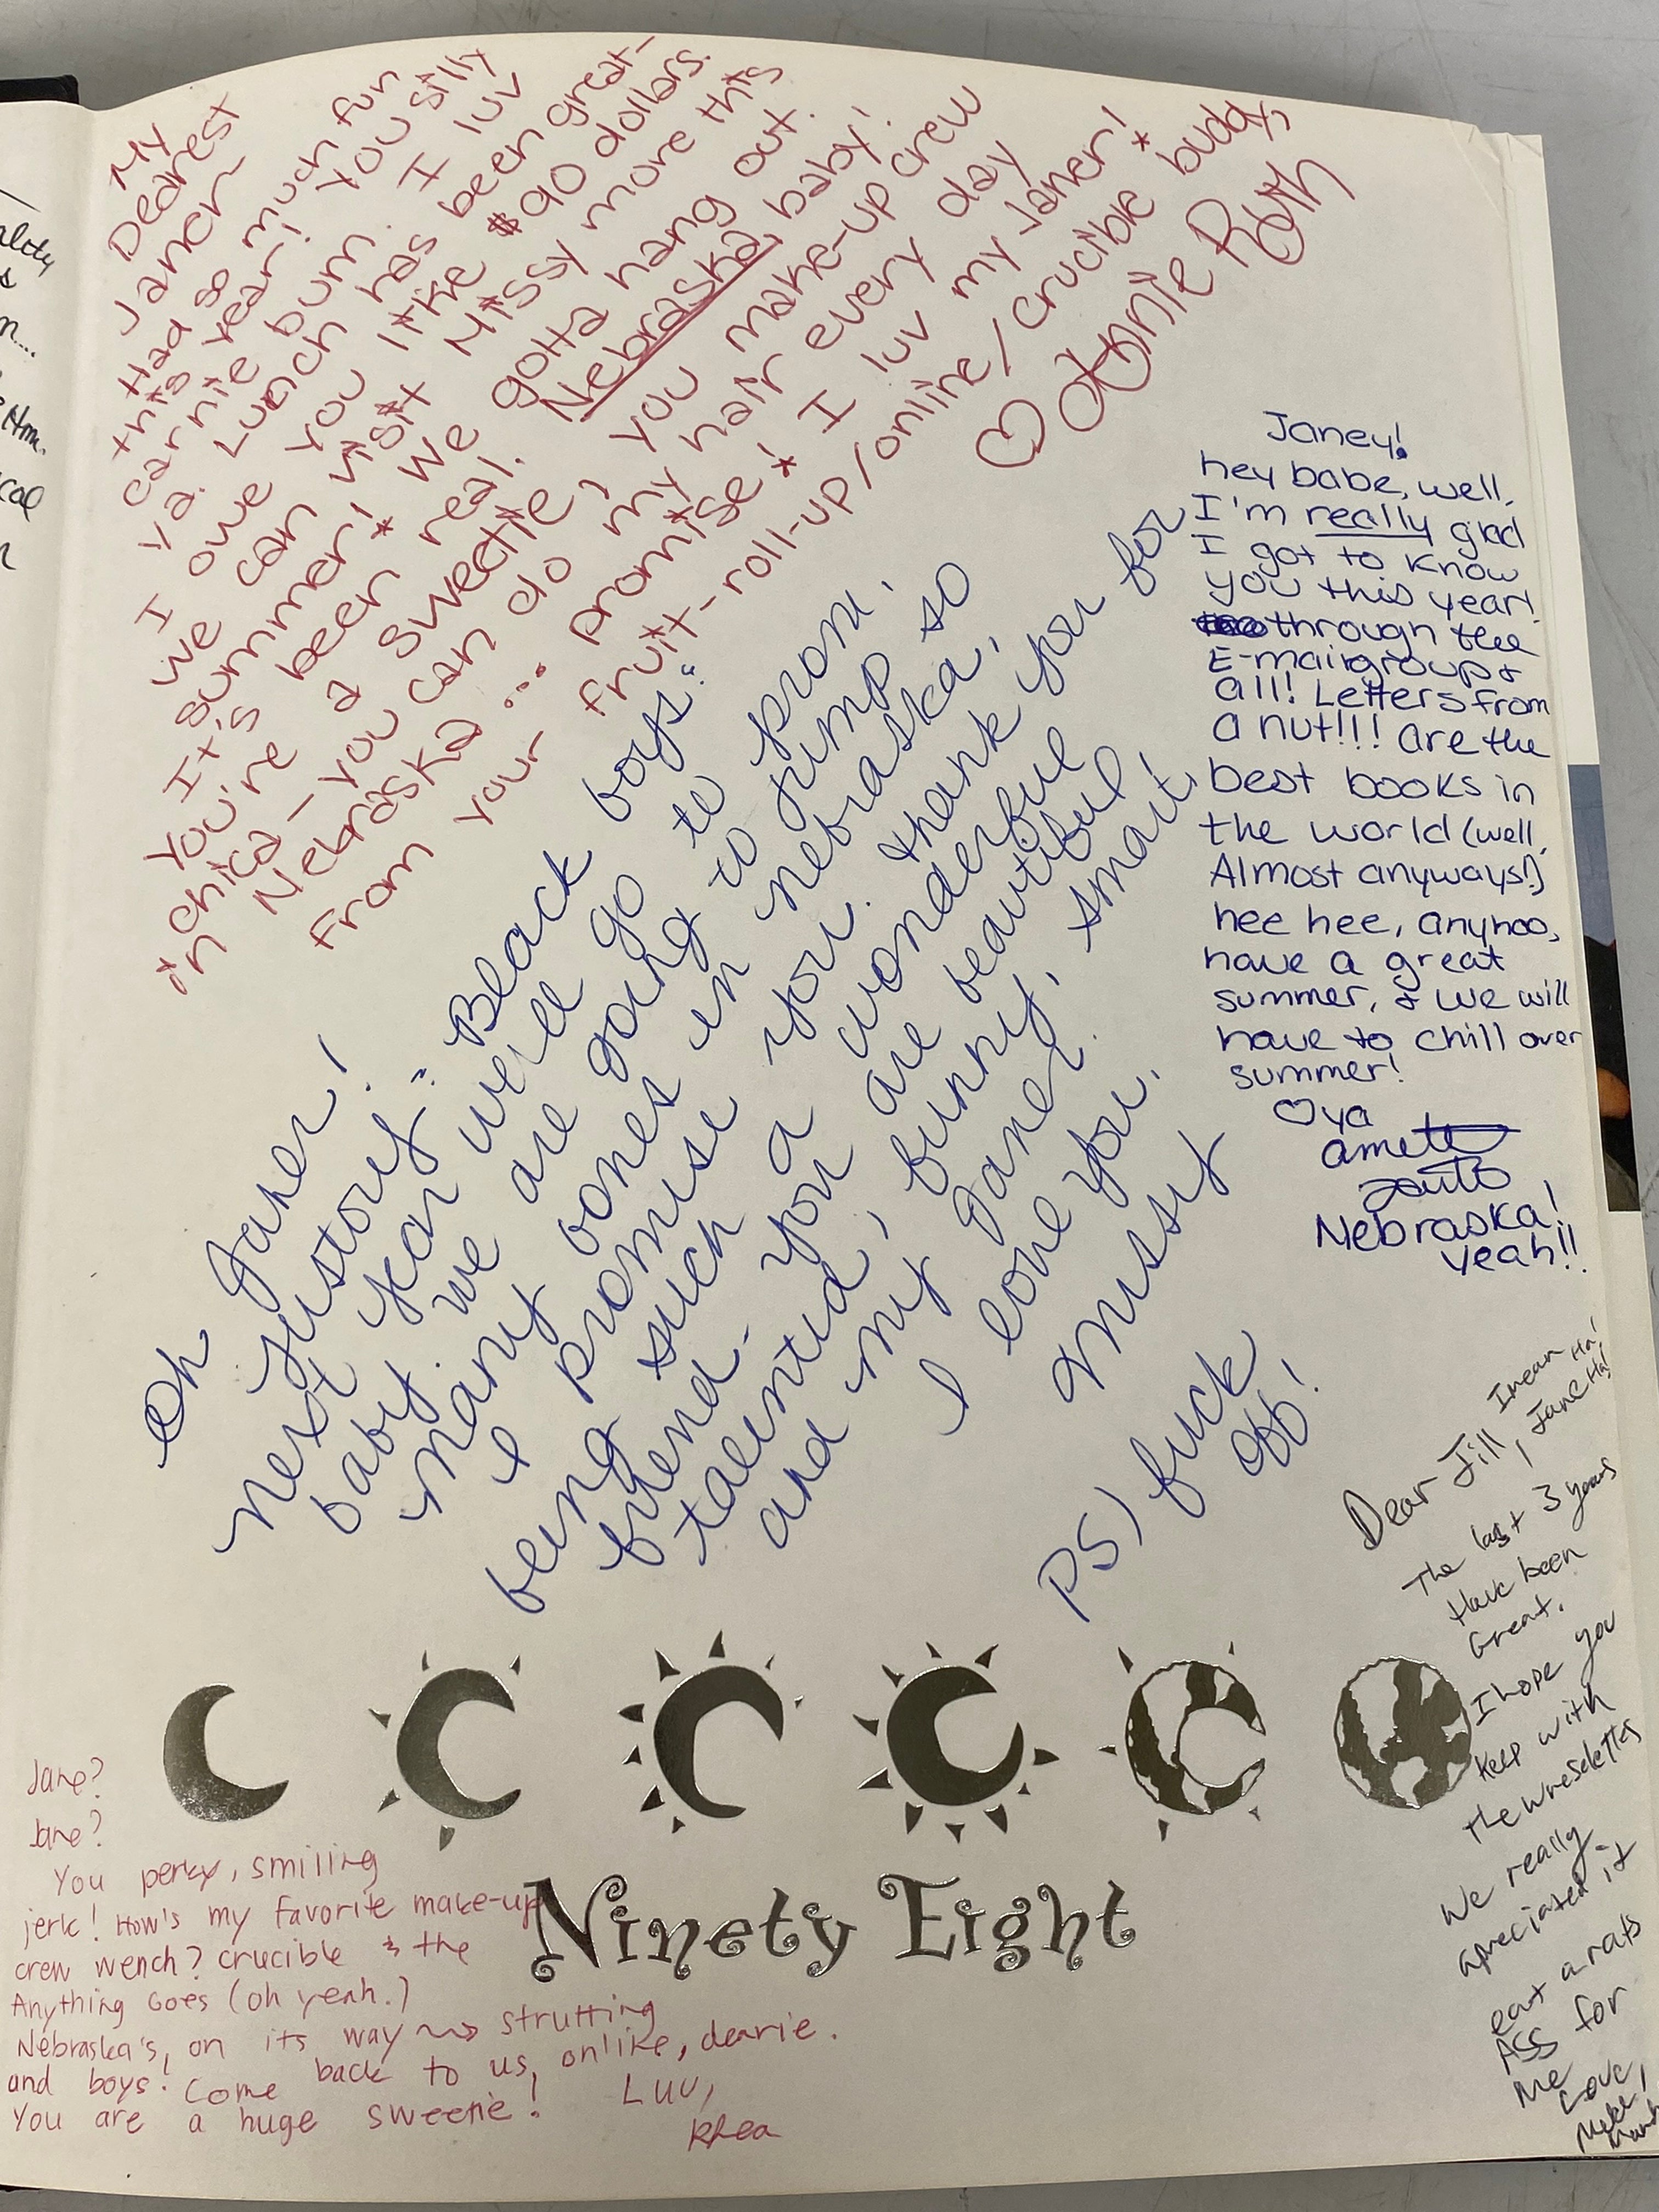 My
Dearest
Janer
Had so much fun
this year! You silly
carnie bum. I luv
ya. Lunch has been great-
I owe you like $90 dollars.
We can visit Missy more this
summer!* We gotta hang out.
It's been real. Nebraska, baby!
You're a sweetie, you make-up crew
chica - you can do my hair every day
in Nebraska... promise!* I luv my Janer!*
From your fruit-roll-up/online/crucible buddy,
♡ Annie Roth
Oh Janer!
history: "Black boys."
next year we'll go to prom,
baby. we are going to jump so
many bones in nebraska,
I promise you. thank you for
being such a wonderful
friend. you are beautiful,
talented, funny, smart,
and my Janer.
I love you,
missy
PS) fuck
off!
Janey!
hey babe, well,
I'm really glad
I got to know
you this year!
through the
E-mail group &
all! Letters from
a nut!!! are the
best books in
the world (well,
Almost anyways!)
hee hee, anyhoo,
have a great
summer, & we will
have to chill over
summer!
♡ ya
Nebraska!
yeah!!
Dear Jill, I mean
Jane Ha! Ha!
The last 3 years
Have been
Great.
I hope you
keep with
the
We really
apreciated it
eat a rats
ASS for
Me
Love,
Jane?
Jane?
You perky, smiling
jerk! How's my favorite make-up
crew wench? crucible & the
Anything Goes (oh yeah.)
Nebraska's, on its way ~> strutting
and boys! Come back to us, onlike, dearie.
You are a huge sweetie! Luv,
Rhea
Ninety Eight